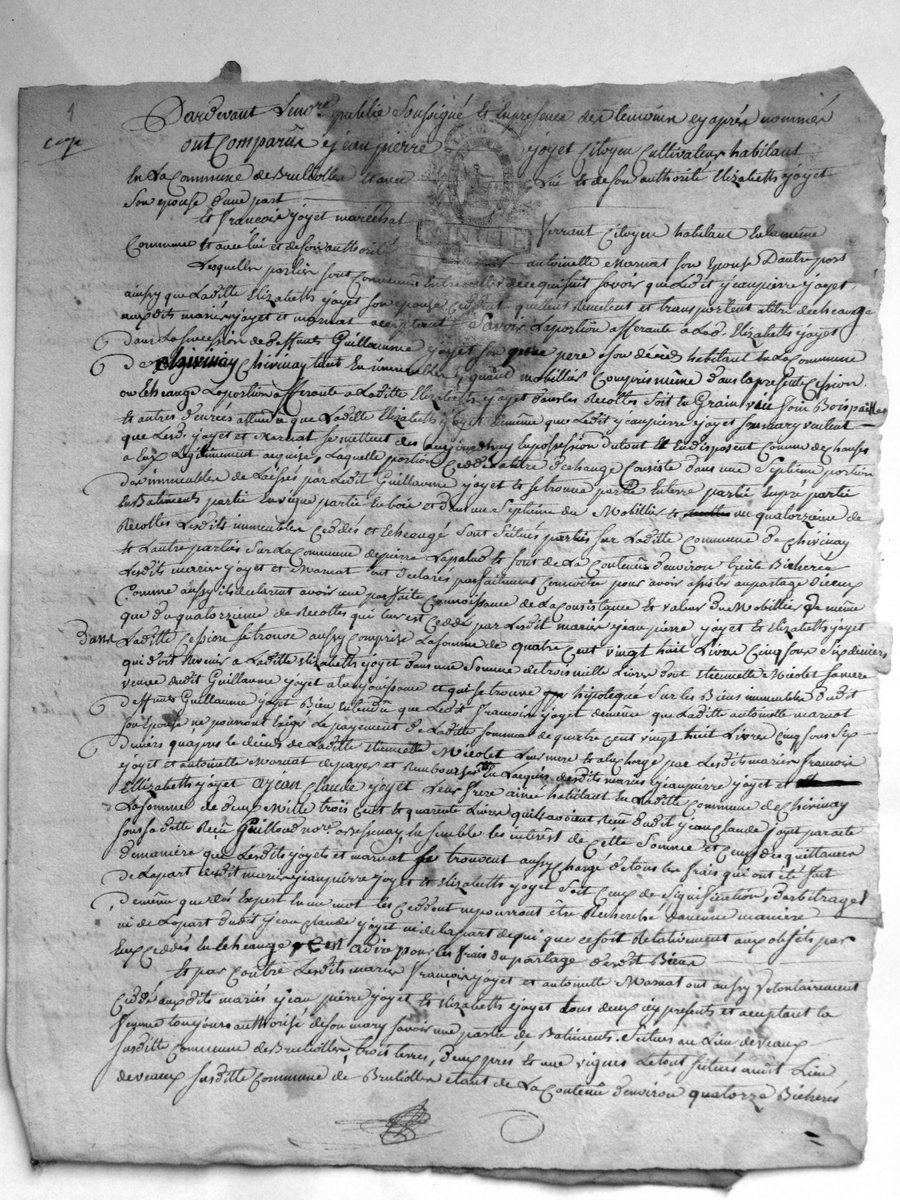 1
Pardevant Lenore publié Soussigné et En presence des temoins cy après nommés
ont Comparûs yjean pierre yoyet Citoyen Cultivateur habitant
En La Commune de Brulliolles et avec lui et de son authorité Elizabeth yoyet
Son epouse d'une part
Et francois yoyet maréchal Ferrant Citoyen habitant En la même
Commune et avec lui et de son authorité antoinette Marnat son Epouse D'autre part
Lesquelles parties sont Convenues Entre elles de ce qui suit savoir que Ledit yjean pierre yoyet
ainsy que Laditte Elizabeth yoyet son epouse Ceddent quittent Remettent et transportent attitre decheange
auxdits mariés yoyet et marnat acceptant Savoir La portion afferante à Lad. Elizabeth yoyet
Dans La succession de deffunt Guillaumme yoyet son pere a son décès habitant En La Commune
De Chivinay tant En immeubles, quand mobilliés Compris même dans la presente Cession
ou Echeange La portion afferante a Laditte Elizabeth yoyet dans les Recoltes Soit En Grain vin foin Bois paille
Et autres denrées attendu que Laditte Elizabeth yoyet de même que Ledit yjean pierre yoyet son mary veulent
que Lesd. yoyet et Marnat se mettent des aujourdhuy En possession du tout et En disposent Comme de choses
a Eux Legitimement acquises, Laquelle portion Ceddé attitre d'echange Consiste dans une Septieme portion
D'immeubles de Laissés par Ledit Guillaume yoyet et se trouve partie En terre partie En pré partie
En Batiments partie En vigne partie En bois et dans un Septieme du Mobillier et un quatorzaine de
Recoltes Lesdits immeubles Ceddés et Echeangé Sont Situés parties sur Laditte Commune de Chivinay
Et L'autre parties Sur La Commune de pierre Lapalud et sont de La Contenue d'environ huit Bicherées
Lesdits mariés yoyet et Marnat ont declarés parfaitement Connoitre pour avoir assistés au partage d'iceux
Comme aussy ils declarent avoir une parfaite Connoissance de La Consistance Et valeur du Mobillier de même
que du quatorzaine de Recoltes, qui Leur est Ceddé par Lesdit mariés yjean pierre yoyet et Elizabeth yoyet
Dans Laditte Cession se trouve aussy Comprise La somme de quatre Cent vingt huit Livre Cinq Sous Six deniers
qui doit Revenir a Laditte Elizabeth yoyet dans une Somme de trois mille Livre dont Etiennette Nicolet sa mere
veuve dudit Guillaume yoyet a la jouissance et qui se trouve hipotequé Sur les Biens immeubles dudit
deffunt Guillaume yoyet Bien Entendû que Ledit francois yoyet de même que Laditte antoinette marnat
son Epouse ne pourront Exiger Le payement de Laditte Somme de quatre Cent vingt huit Livres Cinq Sous Six
Deniers qu'après le decès de Laditte Etiennette Nicolet Leur mere Et a la charge par Lesdits mariés francois
yoyet et antoinette Marnat de payer et Rembourser En Lacquit desdits mariés yjean pierre yoyet et
Elizabeth yoyet a yjean claude yoyet Leur frere ainé habitant En Laditte Commune de Chivinay
La somme de deux Mille trois Cent et quarante Livres qu'ils avoient Reçu dudit yjean claude yoyet par acte
sous sa datte Reçu Guilloud nore a Bessenay, Ensemble les intérêt de Cette Somme et Ceux des quittances
de maniére que Lesdits yoyet et marnat se trouvent aussy Chargé de tous les frais qui ont eté fait
De La part desdit mariés yjean pierre yoyet et Elizabeth yoyet Soit Ceux de Signification, d'arbitrages
De même que dès Expert En un mot les Ceddent ne pourront être Recherché d'aucune maniére
ni de La part dudit yjean claude yoyet ni de la part de qui que ce soit Relativement aux objets par
Eux Ceddés En Echeange, C'est a dire pour les frais du partage desdit Biens
Et par Contre Lesdits mariés francois yoyet et antoinette Marnat ont aussy volontairement
Ceddé auxdits mariés yjean pierre yoyet et Elizabeth yoyet tous deux icy presents et acceptant la
femme toujours authorisé de son mary savoir une partie de Batiments Situés au Lieu de veaux
susditte Commune de Brulliolles, trois terres, deux prés et une vignes Le tout situés audit Lieu
de veaux susditte Commune de Brulliolles etant de La Contenue d'environ quatorze Bicherés